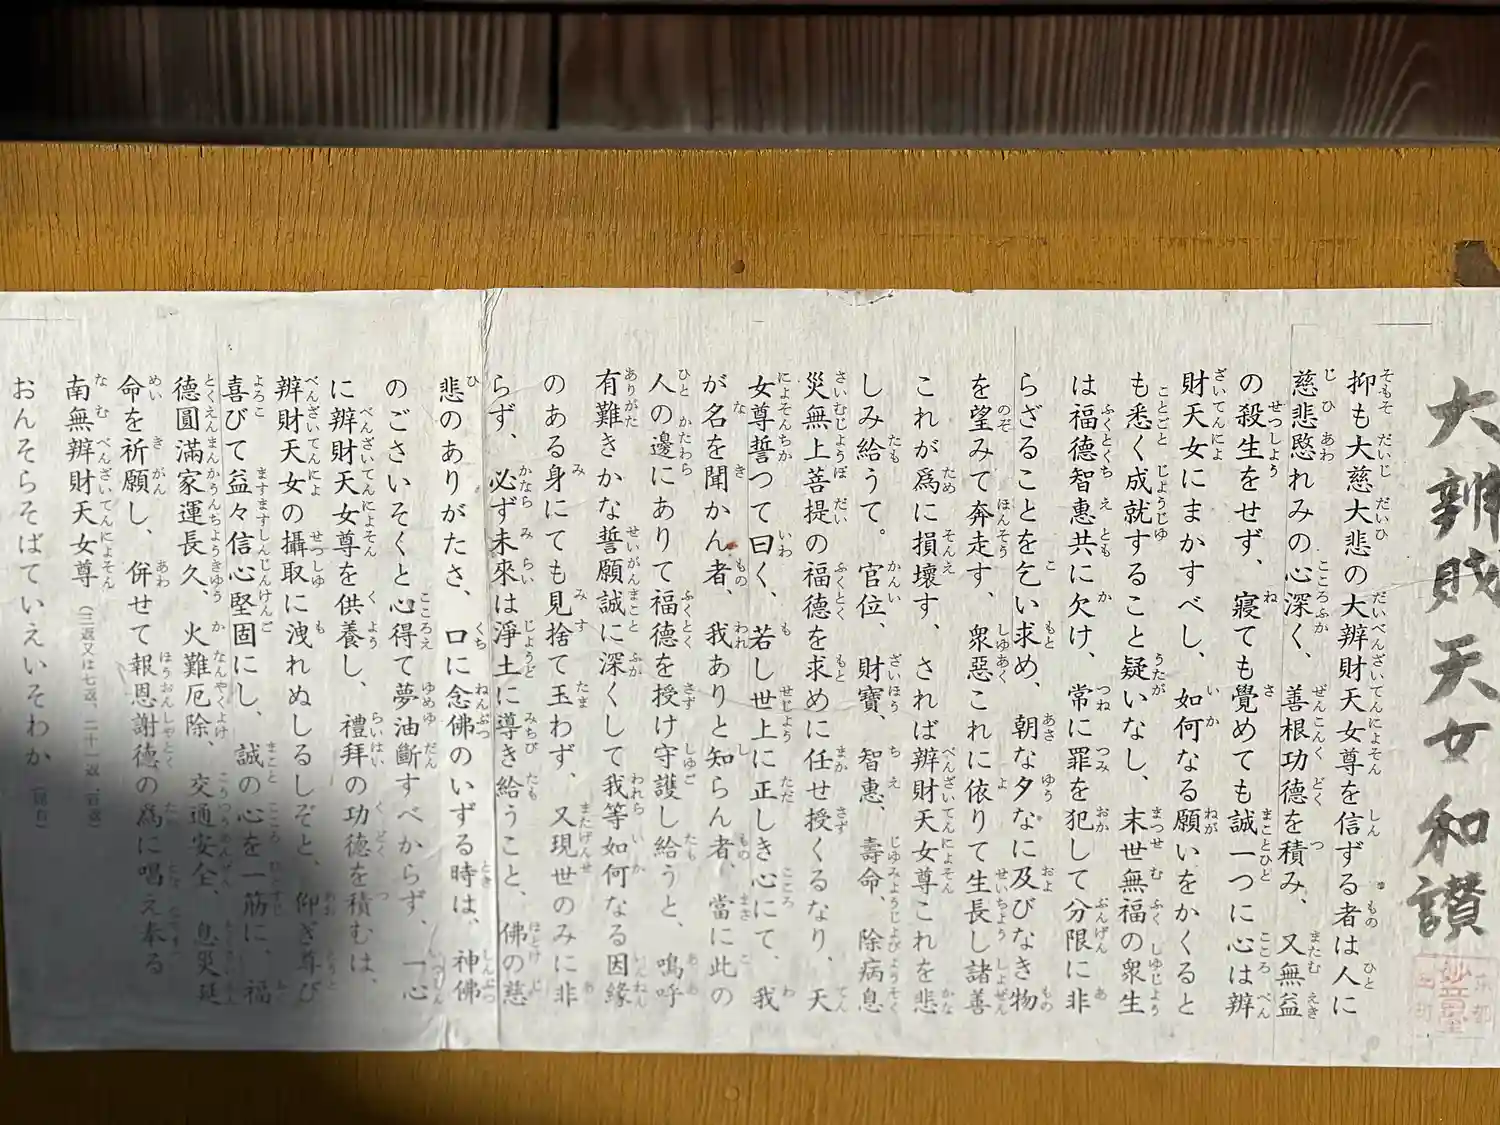 大辨財天女和讃
抑も大慈大悲の大辨財天女尊を信ずる者は人に
慈悲愍れみの心深く、善根功德を積み、又無益
の殺生をせず、寢ても覺めても誠一つに心は辨
財天女にまかすべし、如何なる願いをかくると
も悉く成就すること疑いなし、末世無福の衆生
は福德智惠共に欠け、常に罪を犯して分限に非
らざることを乞い求め、朝な夕なに及びなき物
を望みて奔走す、衆惡これに依りて生長し諸善
これが爲に損壞す、されば辨財天女尊これを悲
しみ給うて。官位、財寶、智惠、壽命、除病息
災無上菩提の福德を求めに任せ授くるなり、天
女尊誓つて曰く、若し世上に正しき心にて、我
が名を聞かん者、我ありと知らん者、當に此の
人の邊にありて福德を授け守護し給うと、嗚呼
有難きかな誓願誠に深くして我等如何なる因緣
のある身にても見捨て玉わず、又現世のみに非
らず、必ず未來は淨土に導き給うこと、佛の慈
悲のありがたさ、口に念佛のいずる時は、神佛
のごさいそくと心得て夢油斷すべからず、一心
に辨財天女尊を供養し、禮拜の功德を積むは、
辨財天女の攝取に洩れぬしるしぞと、仰ぎ尊び
喜びて益々信心堅固にし、誠の心を一筋に、福
德圓滿家運長久、火難厄除、交通安全、息災延
命を祈願し、併せて報恩謝德の爲に唱え奉る
南無辨財天女尊（三返又は七返、二十一返、百返）
おんそらそばていえいそわか